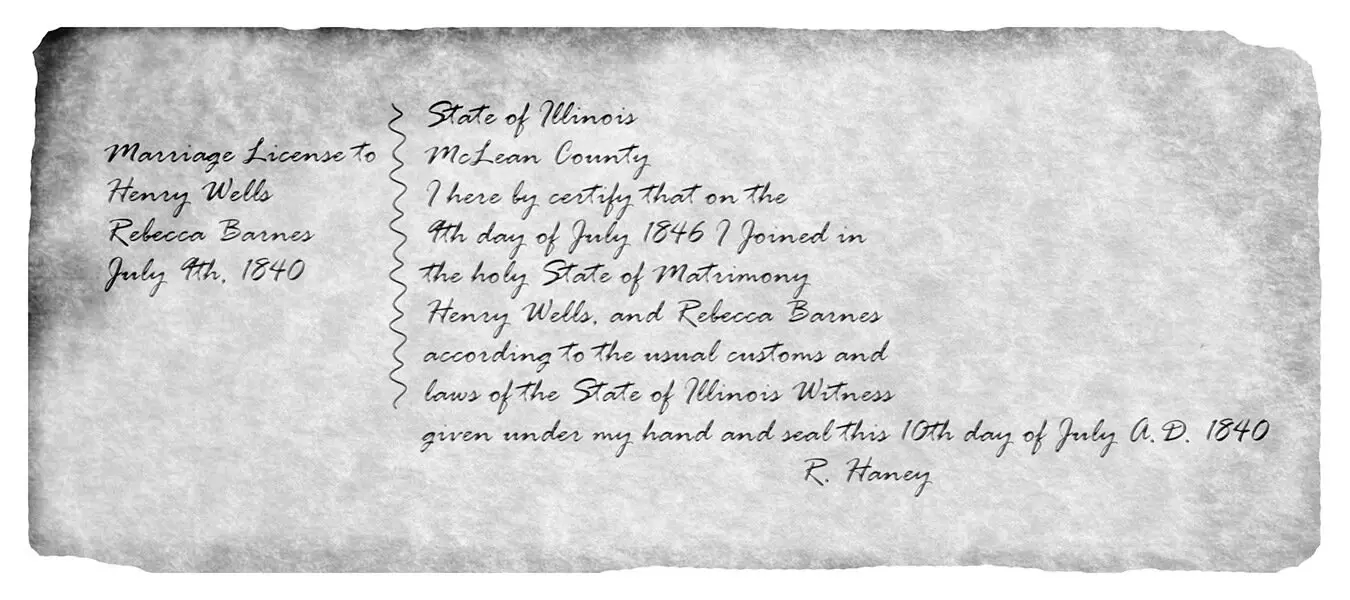 Marriage License to
Henry Wells
Rebecca Barnes
July 9th, 1840
State of Illinois
McLean County
I here by certify that on the
9th day of July 1846 I Joined in
the holy State of Matrimony
Henry Wells, and Rebecca Barnes
according to the usual customs and
laws of the State of Illinois Witness
given under my hand and seal this 10th day of July A.D. 1840
R. Haney